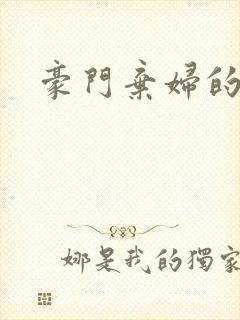 豪門棄婦的
娜是我的獨家